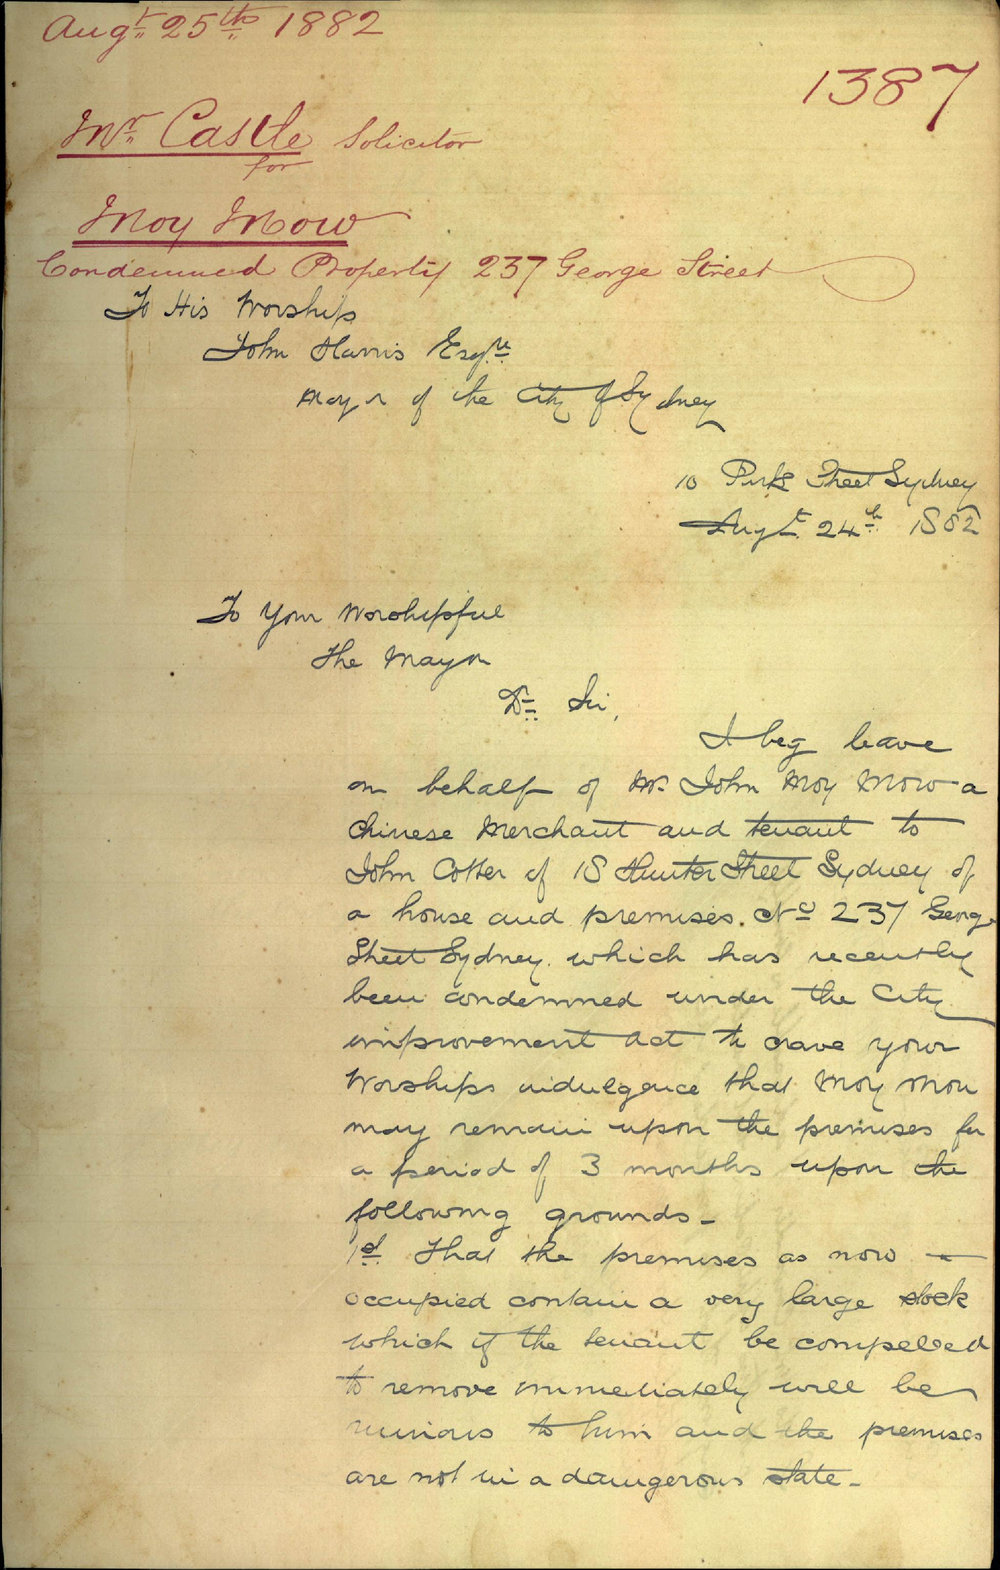 Augt. 25th 1882
1387
Mr. Castle Solicitor
for
Moy Mow
Condemned Property 237 George Street
To His Worship
John Harris Esqre.
Mayor of the City of Sydney
10 Park Street Sydney
Augt. 24th 1882
To Your Worshipful
The Mayor
Dr. Sir,
I beg leave
on behalf of Mr. John Moy Mow a
Chinese Merchant and tenant to
John Cotter of 18 Hunter Street Sydney of
a house and premises. No 237 George
Street Sydney. which has recently
been condemned under the City
improvement Act to crave your
Worships indulgence that Moy Mow
may remain upon the premises for
a period of 3 months upon the
following grounds_
1st. That the premises as now
occupied contain a very large stock
which if the tenant be compelled
to remove immediately will be
ruinous to him and the premises
are not in a dangerous state_